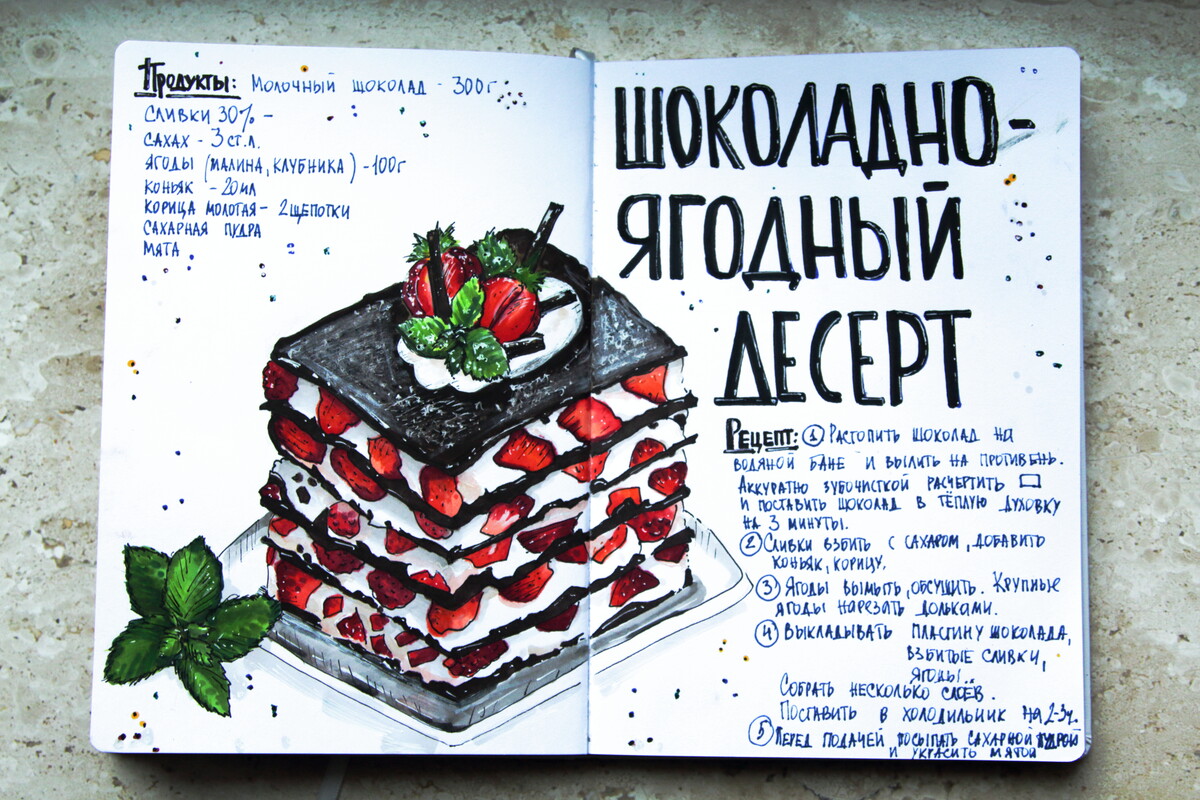 Продукты: Молочный шоколад - 300г
Сливки 30% -
Сахах - 3 ст.л.
Ягоды (малина, клубника) - 100г
Коньяк - 20мл
Корица молотая - 2 щепотки
Сахарная пудра
Мята
ШОКОЛАДНО-
ЯГОДНЫЙ
ДЕСЕРТ
Рецепт: ① Растопить шоколад на
водяной бане и вылить на противень.
Аккуратно зубочисткой расчертить ▭
и поставить шоколад в тёплую духовку
на 3 минуты.
② Сливки взбить с сахаром, добавить
коньяк, корицу.
③ Ягоды вымыть, обсушить. Крупные
ягоды нарезать дольками.
④ Выкладывать пластину шоколада,
взбитые сливки,
ягоды..
Собрать несколько слоев.
Поставить в холодильник на 2-3ч.
⑤ Перед подачей посыпать сахарной пудрой
и украсить мятой